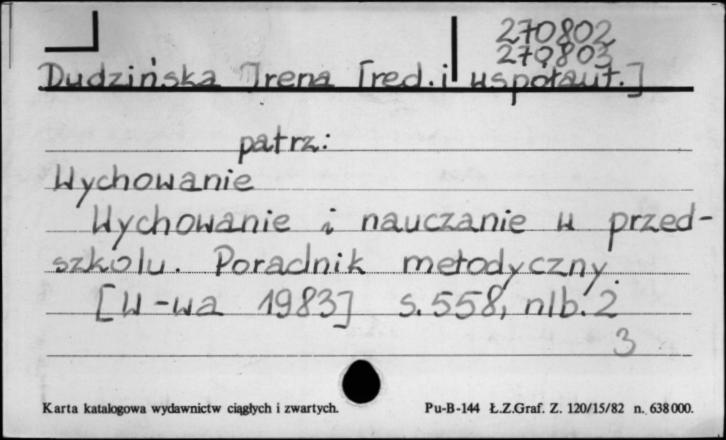 270802
270803
Dudzińska Irena [red. i współaut.]
patrz:
Wychowanie
Wychowanie i nauczanie w przed-
szkolu. Poradnik metodyczny.
[W-wa 1983] s. 558, nlb. 2
3
Karta katalogowa wydawnictw ciągłych i zwartych. Pu-B-144 Ł.Z.Graf. Z. 120/15/82 n. 638000.